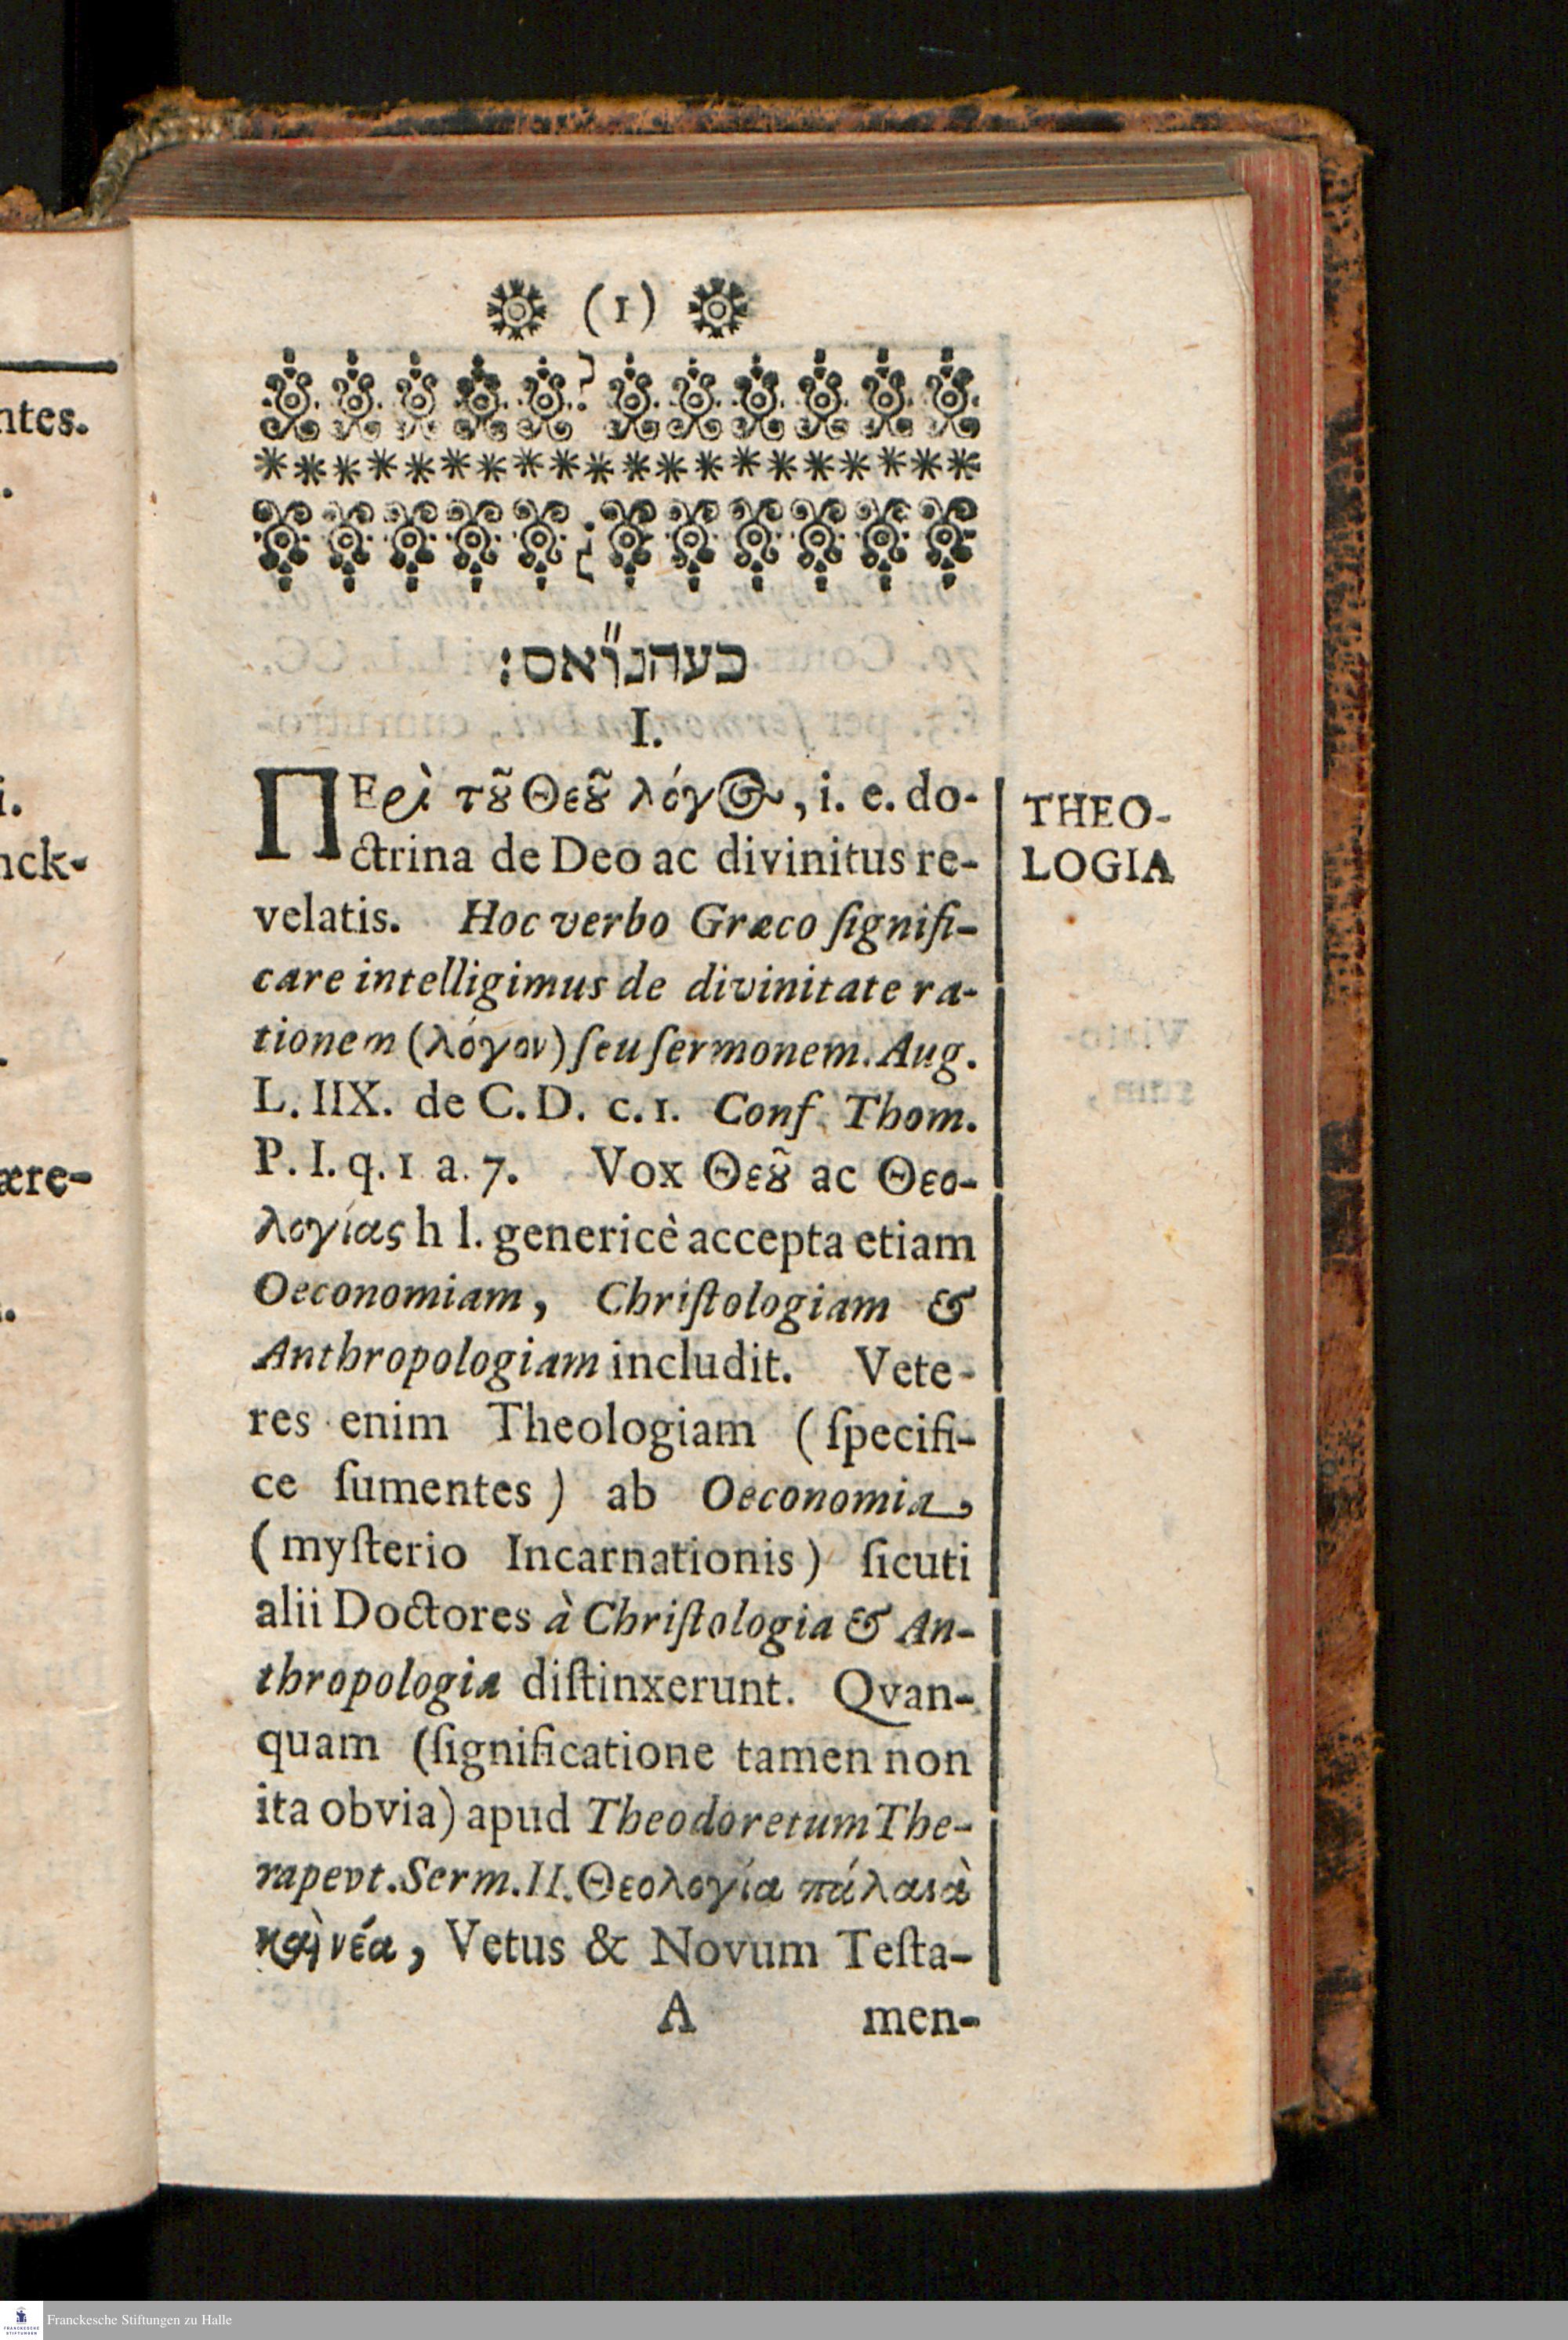 ntes.
i.
nck-
ære-
(1)
בעהנו״אס:
I.
ΠΕρὶ τȣ͂ Θεȣ͂ λόγȣ, i. e. do-
ctrina de Deo ac divinitus re-
velatis. Hoc verbo Græco ſignifi-
care intelligimus de divinitate ra-
tionem (λόγον) ſeu ſermonem. Aug.
L. IIX. de C. D. c. 1. Conf. Thom.
P. I. q. 1 a. 7. Vox Θεȣ͂ ac Θεο-
λογίας h l. genericè accepta etiam
Oeconomiam, Chriſtologiam &
Anthropologiam includit. Vete-
res enim Theologiam (ſpecifi-
ce ſumentes) ab Oeconomia,
(myſterio Incarnationis) ſicuti
alii Doctores à Chriſtologia & An-
thropologia diſtinxerunt. Qvan-
quam (ſignificatione tamen non
ita obvia) apud Theodoretum The-
rapevt. Serm. II. Θεολογία πάλαιὰ
καὶ νέα, Vetus & Novum Teſta-
A men-
THEO-
LOGIA
FRANCKESCHE
STIFTUNGEN
Franckesche Stiftungen zu Halle